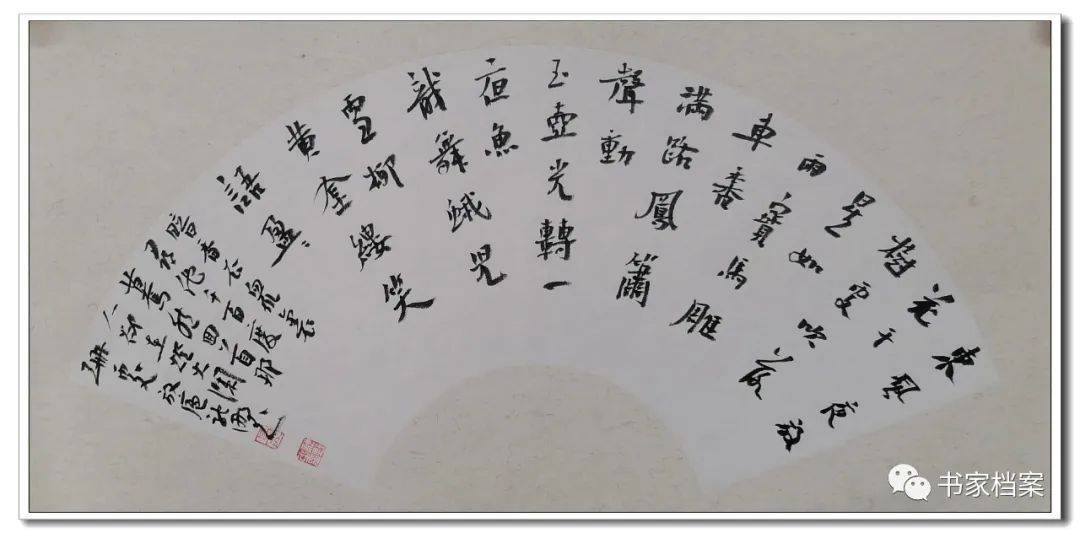 東風夜放
花千
樹更吹落
星如
雨寶馬雕
車香
滿路鳳簫
聲動
玉壺光轉一
夜魚
龍舞蛾兒
雪柳
黃金縷笑
語盈〻
暗香去眾裏
尋他千百度
驀然回首那
人卻在燈火闌
珊處
书家档案